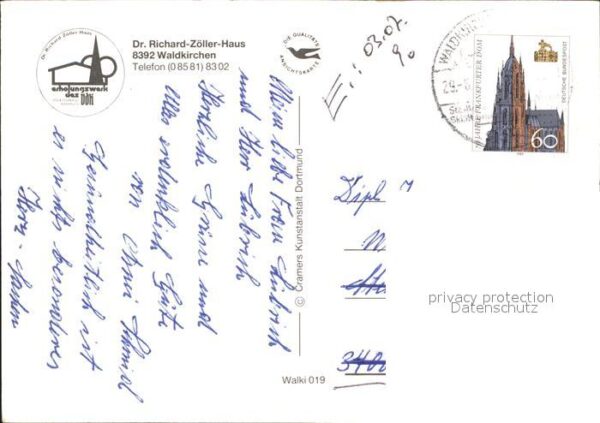 Dr. Richard Zöller Haus
erholungswerk
des
Dr. Richard-Zöller-Haus
8392 Waldkirchen
Telefon (0 85 81) 83 02
DIE QUALITÄTS
ANSICHTSKARTE
E.: 03.07.
90
WALDKIRCHEN
JAHRE FRANKFURTER DOM
DEUTSCHE BUNDESPOST
60
Mein liebe Frau
und Herr
Herzliche Grüße und
Alles erdenklich Gute
von Schmidl
Gesundheitlich ist
es nichts besonderes
Herz-
© Cramers Kunstanstalt Dortmund
Walki 019
Dipl
340
privacy protection
Datenschutz